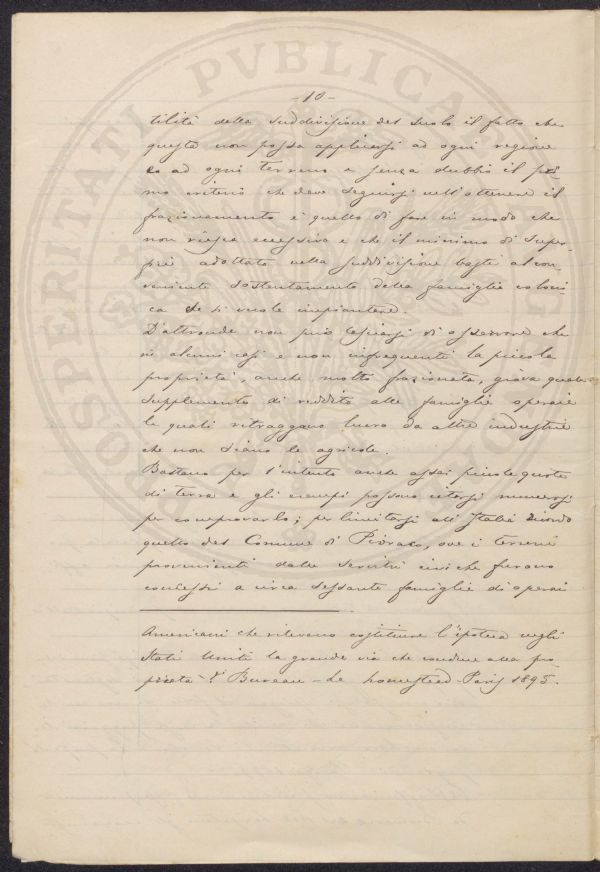 - 10 -
tilità della suddivisione del suolo il fatto che
questa non possa applicarsi ad ogni regione
e ad ogni terreno e senza dubbio il pri
mo criterio che deve seguirsi nell'ottenere il
frazionamento è quello di fare in modo che
non riesca eccessivo e che il minimo di super-
ficie adottato nella suddivisione basti al con
veniente sostentamento della famiglia coloni
ca che si vuole impiantare.
D'altronde non può lasciarsi di osservare che
in alcuni casi e non infrequenti la piccola
proprietà, anche molto frazionata, giova quale
supplemento di reddito alle famiglie operaie
le quali ritraggano lucro da altre industrie
che non siano le agricole.
Bastano per l'intento anche assai piccole quote
di terra e gli esempi possono citarsi numerosi
per comprovarlo; per limitarsi all'Italia ricordo
quello del Comune di Pioraco, ove i terreni
provenienti dalle servitù civiche furono
concessi a circa sessanta famiglie di operai
Americani che ritevano costituire l'ipoteca negli
Stati Uniti la grande via che conduce alla pro
prietà. V. Bureau - Le homestead - Paris 1895.
PROSPERITATI PVBLICAE